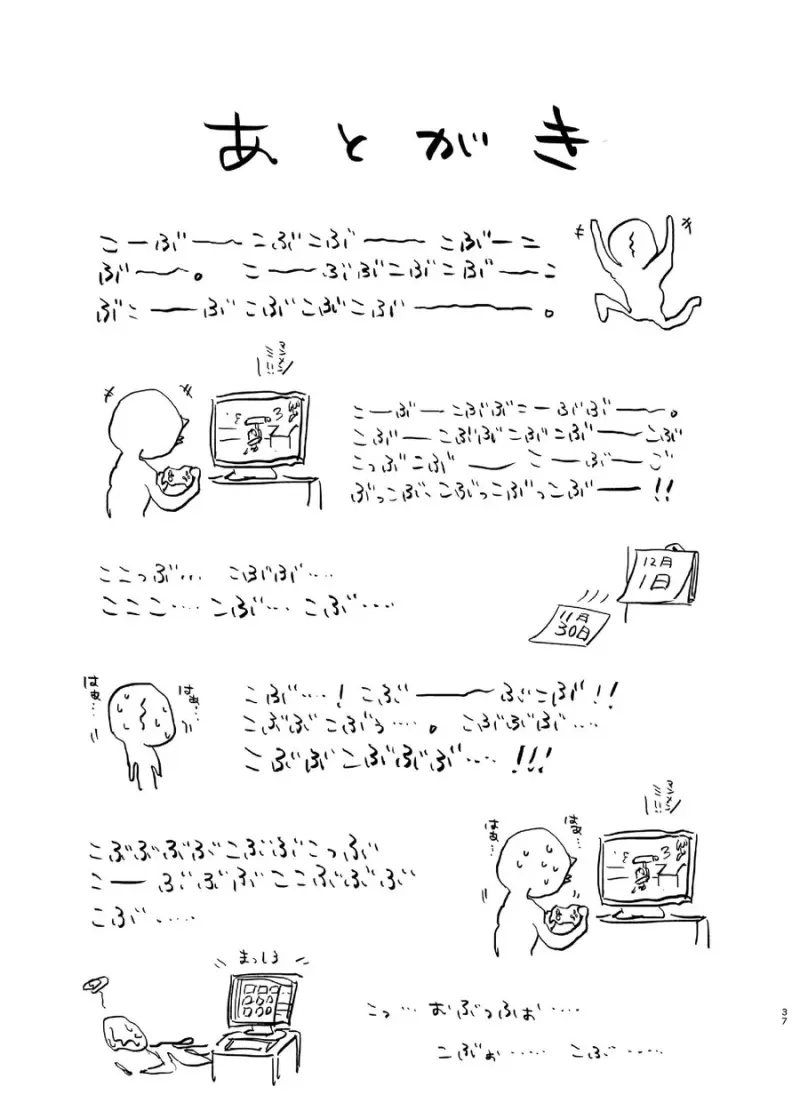 あとがき
こーぶ――こぶこぶ――こぶーこ
ぶ――。こ――ぶぶこぶこぶーこ
ぶこ――ぶこぶこぶこぶ――――。
こーぶーこぶぶこーぶぶ――。
こぶーこぶぶこぶこぶ――こぶ
こっぶこぶ―― こーぶーご
ぶっこぶ、こぶっこぶっこぶ――!!
12月
1日
11月
30日
ここっぶ… こぶぶ‥‥
こここ‥‥こぶ…こぶ‥‥
はぁ…
はぁ…
こぶ‥‥!こぶ――――ぶこぶ!!
こぶぶこぶぅ‥‥。こぶぶぶ‥‥
こぶぶこぶぶぶ‥‥!!!
はぁ…
はぁ…
こぶぶぶぶこぶぶこっぶ
こーぶぶぶここぶぶぶ
こぶ‥‥‥
まっしろ
こっ…おぶっふぉ‥‥‥
こぶぉ‥‥‥ こぶ‥‥‥
37